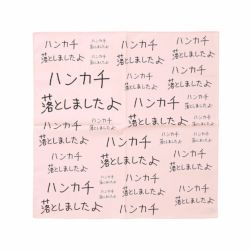 ハンカチ
落としましたよ
ハンカチ
落としましたよ
ハンカチ
落としましたよ
ハンカチ
落としましたよ
ハンカチ
落としましたよ
ハンカチ
落としましたよ
ハンカチ
落としましたよ
ハンカチ
落としましたよ
ハンカチ
落としましたよ
ハンカチ
落としましたよ
ハンカチ
落としましたよ
ハンカチ
落としましたよ
ハンカチ
落としましたよ
ハンカチ
落としましたよ
ハンカチ
落としましたよ
ハンカチ
落としましたよ
ハンカチ
落としましたよ
ハンカチ
落としましたよ
ハンカチ
落としましたよ
ハンカチ
落としましたよ